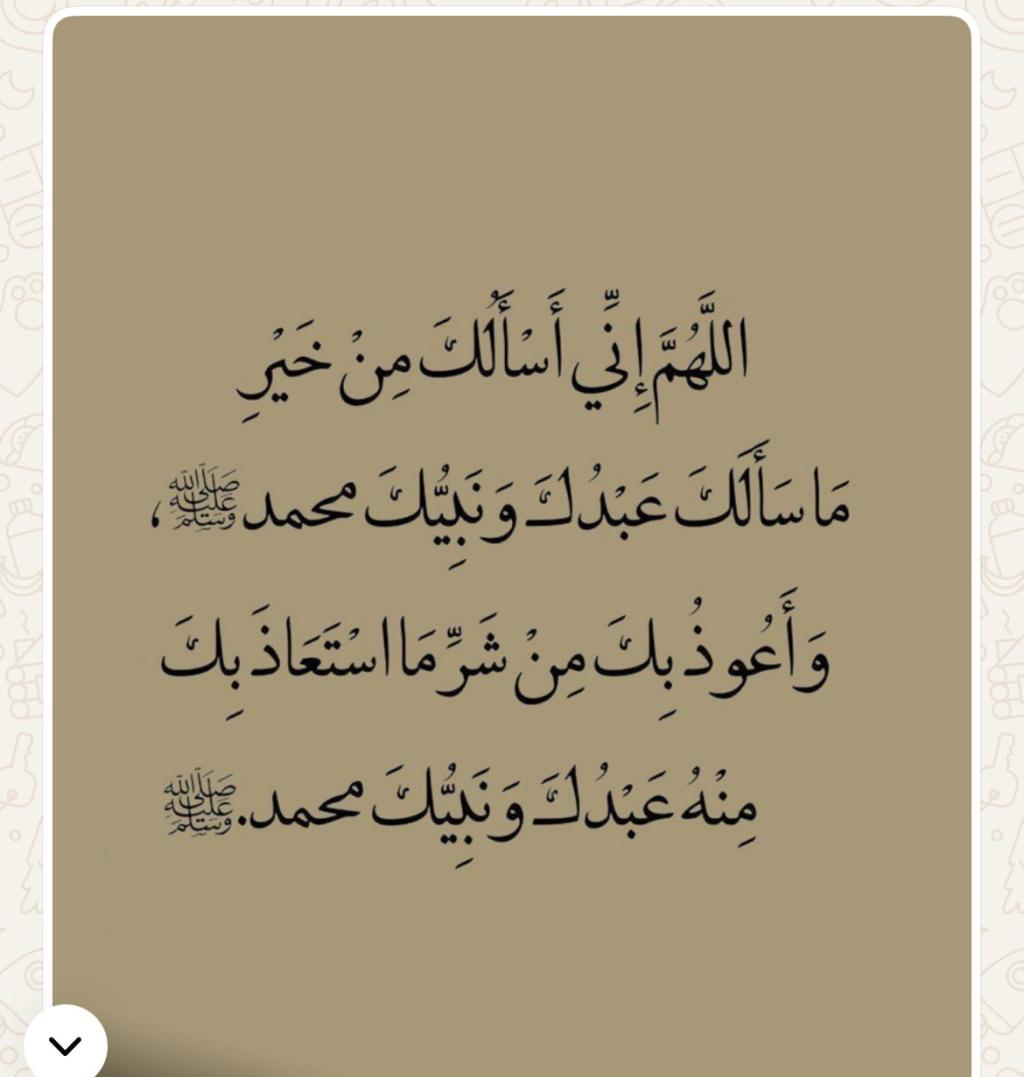 اللَّهُمَّ إِنِّي أَسْأَلُكَ مِنْ خَيْرِ
مَا سَأَلَكَ عَبْدُكَ وَنَبِيُّكَ محمد ﷺ،
وَأَعُوذُ بِكَ مِنْ شَرِّ مَا اسْتَعَاذَ بِكَ
مِنْهُ عَبْدُكَ وَنَبِيُّكَ محمد. ﷺ